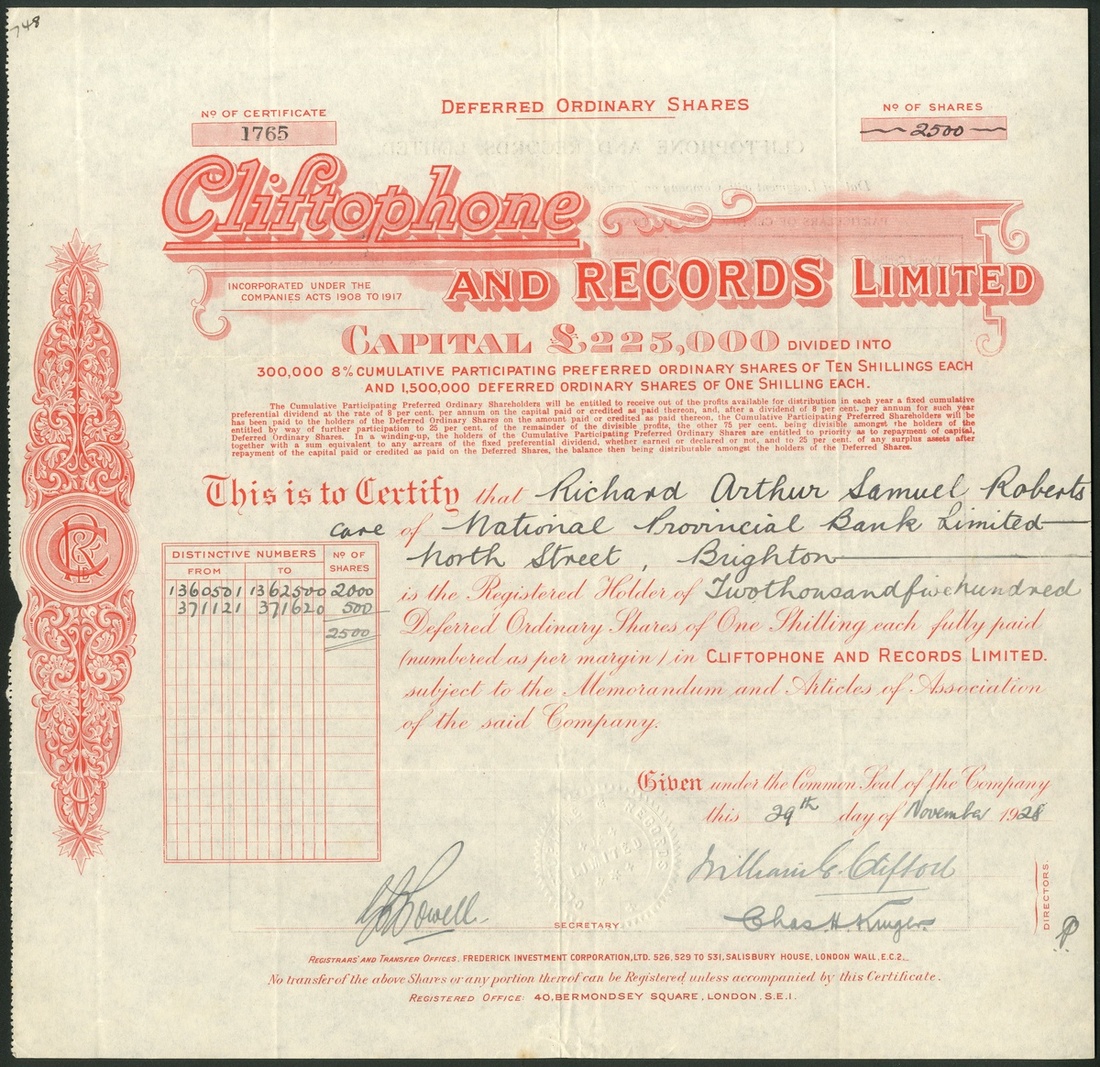 748
DEFERRED ORDINARY SHARES
Nº OF CERTIFICATE
1765
Nº OF SHARES
2500
Cliftophone
AND RECORDS LIMITED
INCORPORATED UNDER THE
COMPANIES ACTS 1908 TO 1917
CAPITAL £225,000 DIVIDED INTO
300,000 8% CUMULATIVE PARTICIPATING PREFERRED ORDINARY SHARES OF TEN SHILLINGS EACH
AND 1,500,000 DEFERRED ORDINARY SHARES OF ONE SHILLING EACH.
The Cumulative Participating Preferred Ordinary Shareholders will be entitled to receive out of the profits available for distribution in each year a fixed cumulative
preferential dividend at the rate of 8 per cent. per annum on the capital paid or credited as paid thereon, and, after a dividend of 8 per cent. per annum for such year
has been paid to the holders of the Deferred Ordinary Shares on the amount paid or credited as paid thereon, the Cumulative Participating Preferred Shareholders will be
entitled by way of further participation to 25 per cent. of the remainder of the divisible profits, the other 75 per cent. being divisible amongst the holders of the
Deferred Ordinary Shares. In a winding-up, the holders of the Cumulative Participating Preferred Ordinary Shares are entitled to priority as to repayment of capital,
together with a sum equivalent to any arrears of the fixed preferential dividend, whether earned or declared or not, and to 25 per cent. of any surplus assets after
repayment of the capital paid or credited as paid on the Deferred Shares, the balance then being distributable amongst the holders of the Deferred Shares.
This is to Certify that Richard Arthur Samuel Roberts
care of National Provincial Bank Limited
North Street, Brighton
DISTINCTIVE NUMBERS
Nº OF SHARES
FROM TO
1360501 1362500 2000
371121 371620 500
2500
is the Registered Holder of Two thousand five hundred
Deferred Ordinary Shares of One Shilling each fully paid
(numbered as per margin) in CLIFTOPHONE AND RECORDS LIMITED.
subject to the Memorandum and Articles of Association
of the said Company.
Given under the Common Seal of the Company
this 29th day of November 1928
William G. Clifton
Chas H Kruger
Powell
SECRETARY.
DIRECTORS.
REGISTRARS' AND TRANSFER OFFICES. FREDERICK INVESTMENT CORPORATION, LTD. 526, 529 TO 531, SALISBURY HOUSE, LONDON WALL, E.C.2.
No transfer of the above Shares or any portion thereof can be Registered unless accompanied by this Certificate.
REGISTERED OFFICE: 40, BERMONDSEY SQUARE, LONDON. S.E.1.